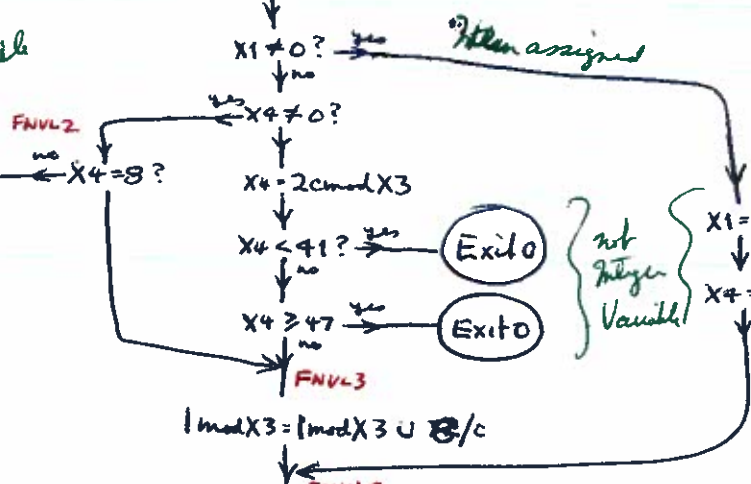 X1 ≠ 0? yes
no
when assigned
yes X4 ≠ 0?
FNVL2
no X4=8?
X4 = 2cmodX3
X4 < 41? yes Exit0
no
X4 ≥ 47 yes Exit0
no
not
Integer
Variable
X1 =
X4 =
FNVL3
1modX3 = 1modX3 ∪ /c